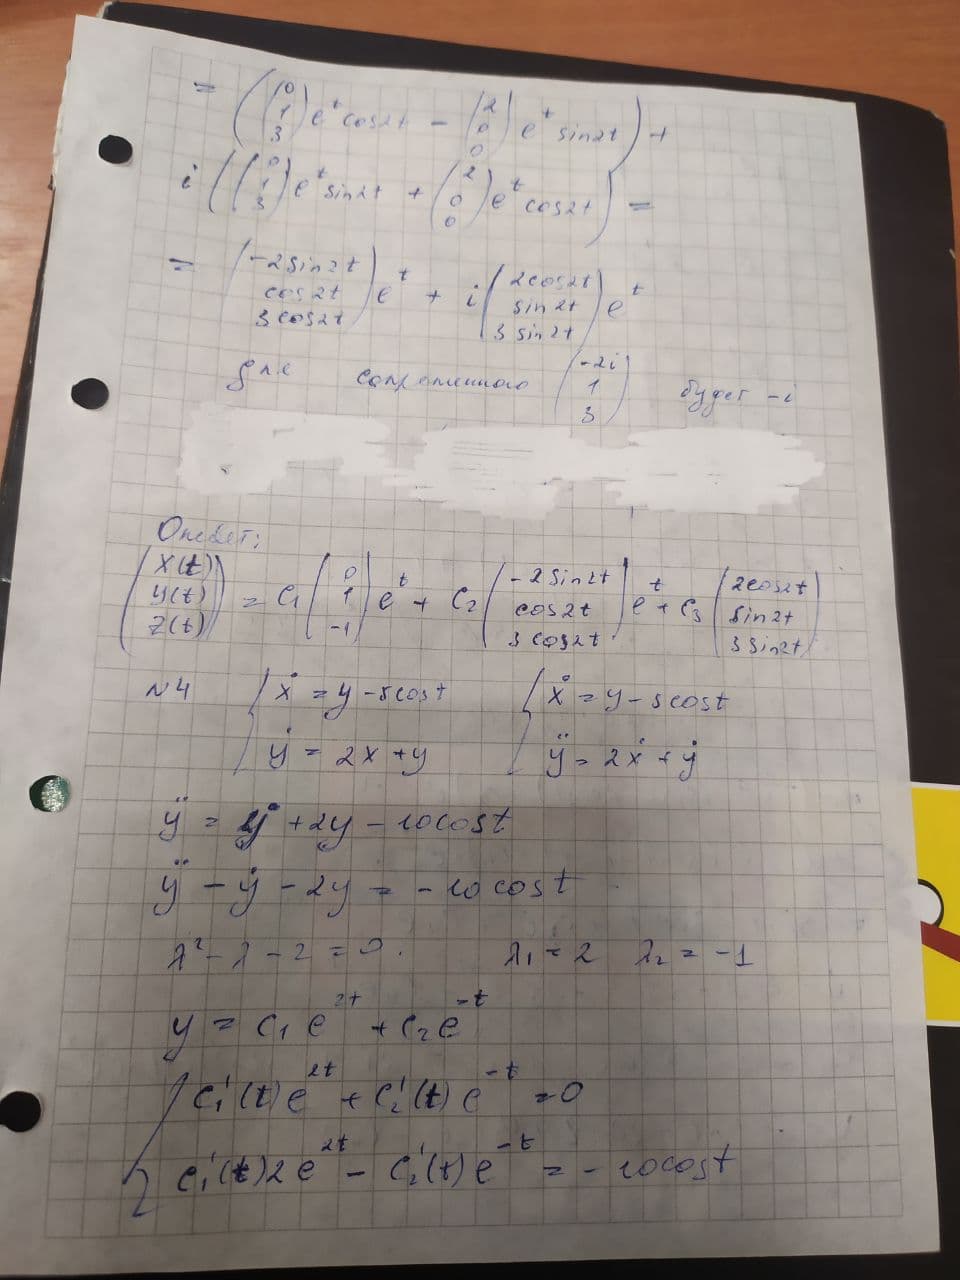 = ((0 1 3) e^t cos2t - (2 0 0) e^t sin2t) +
i ((0 1 3) e^t sin2t + (2 0 0) e^t cos2t) =
= (-2sin2t cos2t 3cos2t) e^t + i (2cos2t sin2t 3sin2t) e^t
для сопряженного (-2i 1 3) будет -i
Ответ:
(x(t) y(t) z(t)) = C₁ (0 1 -1) e^t + C₂ (-2sin2t cos2t 3cos2t) e^t + C₃ (2cos2t sin2t 3sin2t)
№4 { ẋ = y - 5cost { ẋ = y - 5cost
ẏ = 2x + y ÿ = 2ẋ + ẏ
ÿ = ẏ + 2y - 10cost
ÿ - ẏ - 2y = -10cost
λ² - λ - 2 = 0. λ₁ = 2 λ₂ = -1
y = C₁ e^2t + C₂ e^-t
{ C₁'(t) e^2t + C₂'(t) e^-t = 0
C₁'(t) 2e^2t - C₂'(t) e^-t = -10cost